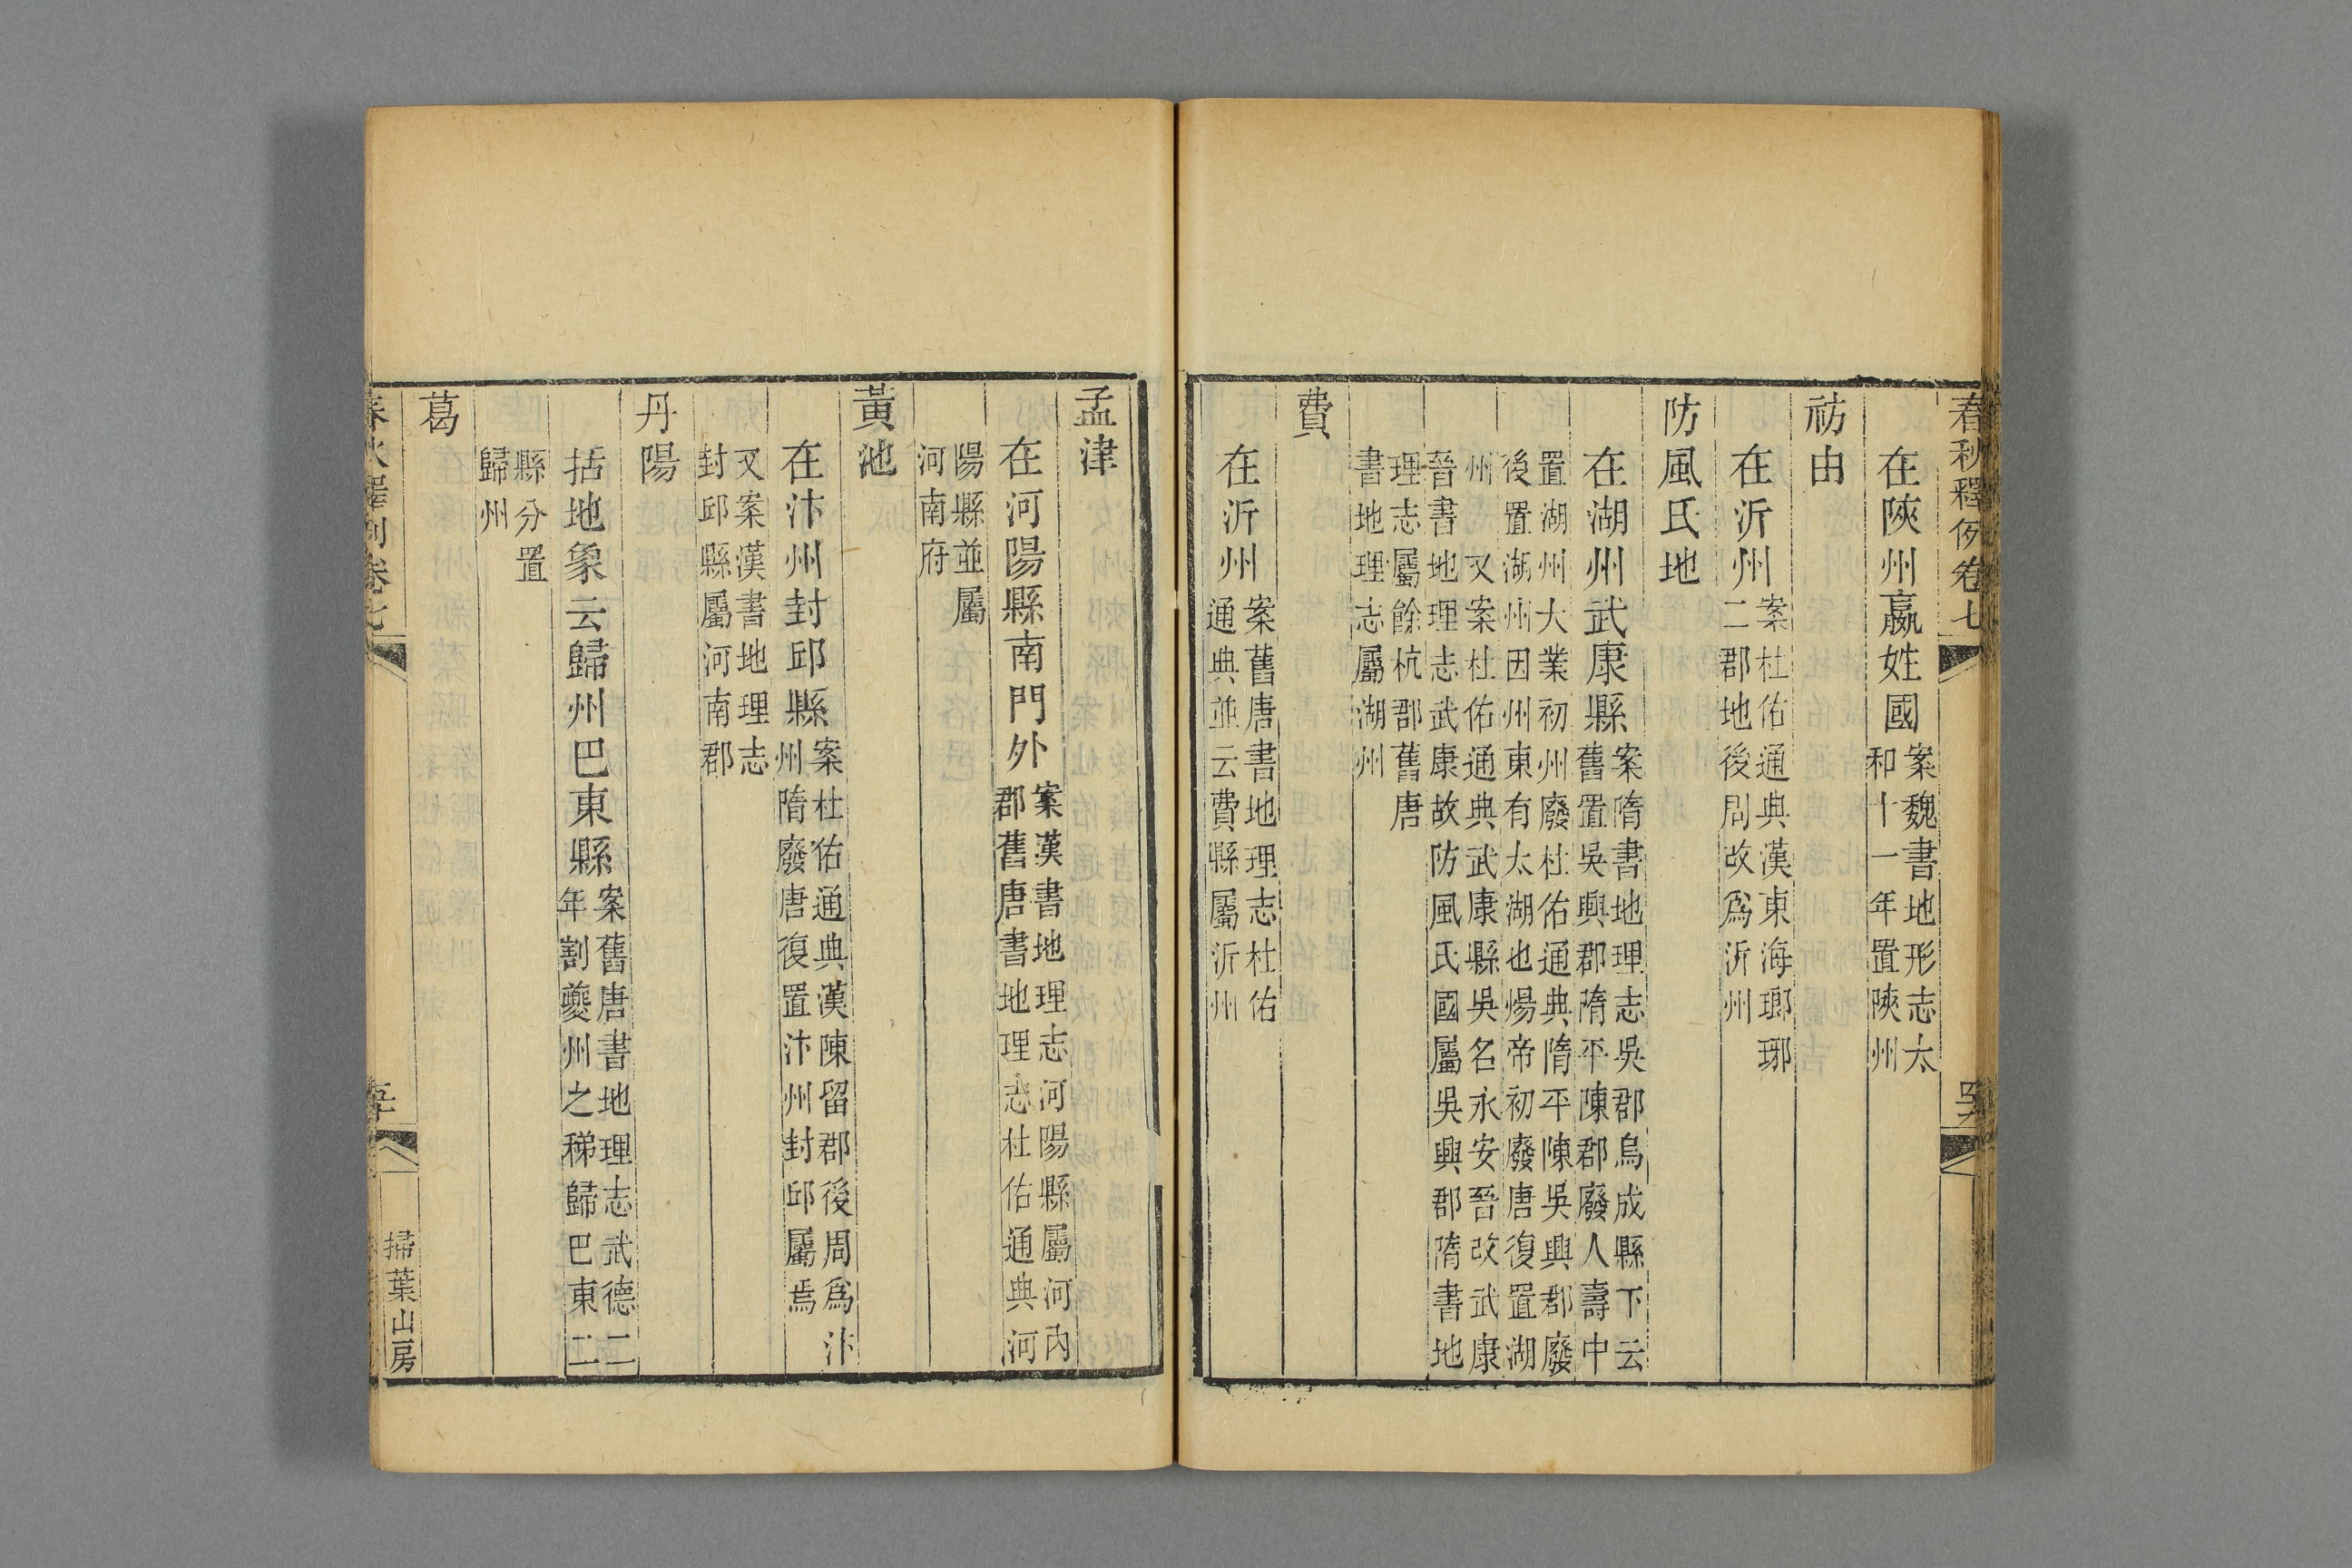 春秋釋例卷七
在陝州嬴姓國案魏書地形志太
和十一年置陝州
祊由
在沂州案杜佑通典漢東海瑯琊
二郡地後周改爲沂州
防風氏地
在湖州武康縣案隋書地理志吳郡烏成縣下云
舊置吳興郡隋平陳郡廢人壽中
置湖州大業初州廢杜佑通典隋平陳吳興郡廢
後置湖州因州東有太湖也煬帝初廢唐復置湖
州 又案杜佑通典武康縣吳名永安晉改武康
晉書地理志武康故防風氏國屬吳興郡隋書地
理志屬餘杭郡舊唐
書地理志屬湖州
費
在沂州案舊唐書地理志杜佑
通典並云費縣屬沂州
孟津
在河陽縣南門外案漢書地理志河陽縣屬河內
郡舊唐書地理志杜佑通典河
陽縣並屬
河南府
黃池
在汴州封邱縣案杜佑通典漢陳留郡後周爲汴
州隋廢唐復置汴州封邱屬焉
又案漢書地理志
封邱縣屬河南郡
丹陽
括地象云歸州巴東縣案舊唐書地理志武德二
年割夔州之秭歸巴東二
縣分置
歸州
葛
春秋釋例卷七
掃葉山房